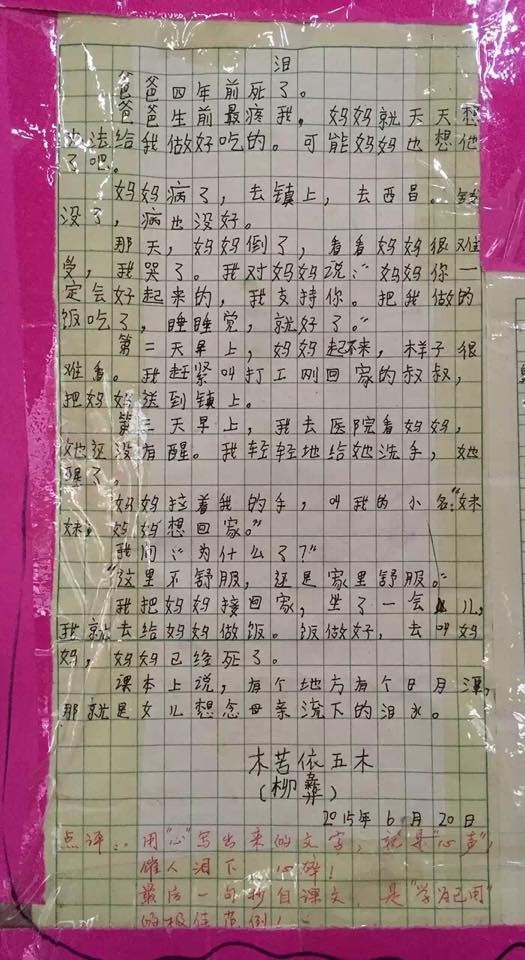 泪
爸爸四年前死了。
爸爸生前最疼我,妈妈就天天想
办法给我做好吃的。可能妈妈也想他
了吧。
妈妈病了,去镇上,去西昌。钱
没了,病也没好。
那天,妈妈倒了,看看妈妈很难
受,我哭了。我对妈妈说:“妈妈你一
定会好起来的,我支持你。把我做的
饭吃了,睡睡觉,就好了。”
第二天早上,妈妈起不来,样子很
难看。我赶紧叫打工刚回家的叔叔,
把妈妈送到镇上。
第三天早上,我去医院看妈妈,
她还没有醒。我轻轻地给她洗手,她
醒了,
妈妈拉着我的手,叫我的小名:“妹
妹,妈妈想回家。”
我问:“为什么了?”
“这里不舒服,还是家里舒服。”
我把妈妈接回家,坐了一会儿,
我就去给妈妈做饭。饭做好,去叫妈
妈,妈妈已经死了。
课本上说,有个地方有个日月潭,
那就是女儿想念母亲流下的泪水。
木苦依五木
(柳彝)
2015年6月20日
点评:用“心”写出来的文字,就是“心声”,
催人泪下,心碎!
最后一句抄自课文,是“学为己用”
的极佳范例!